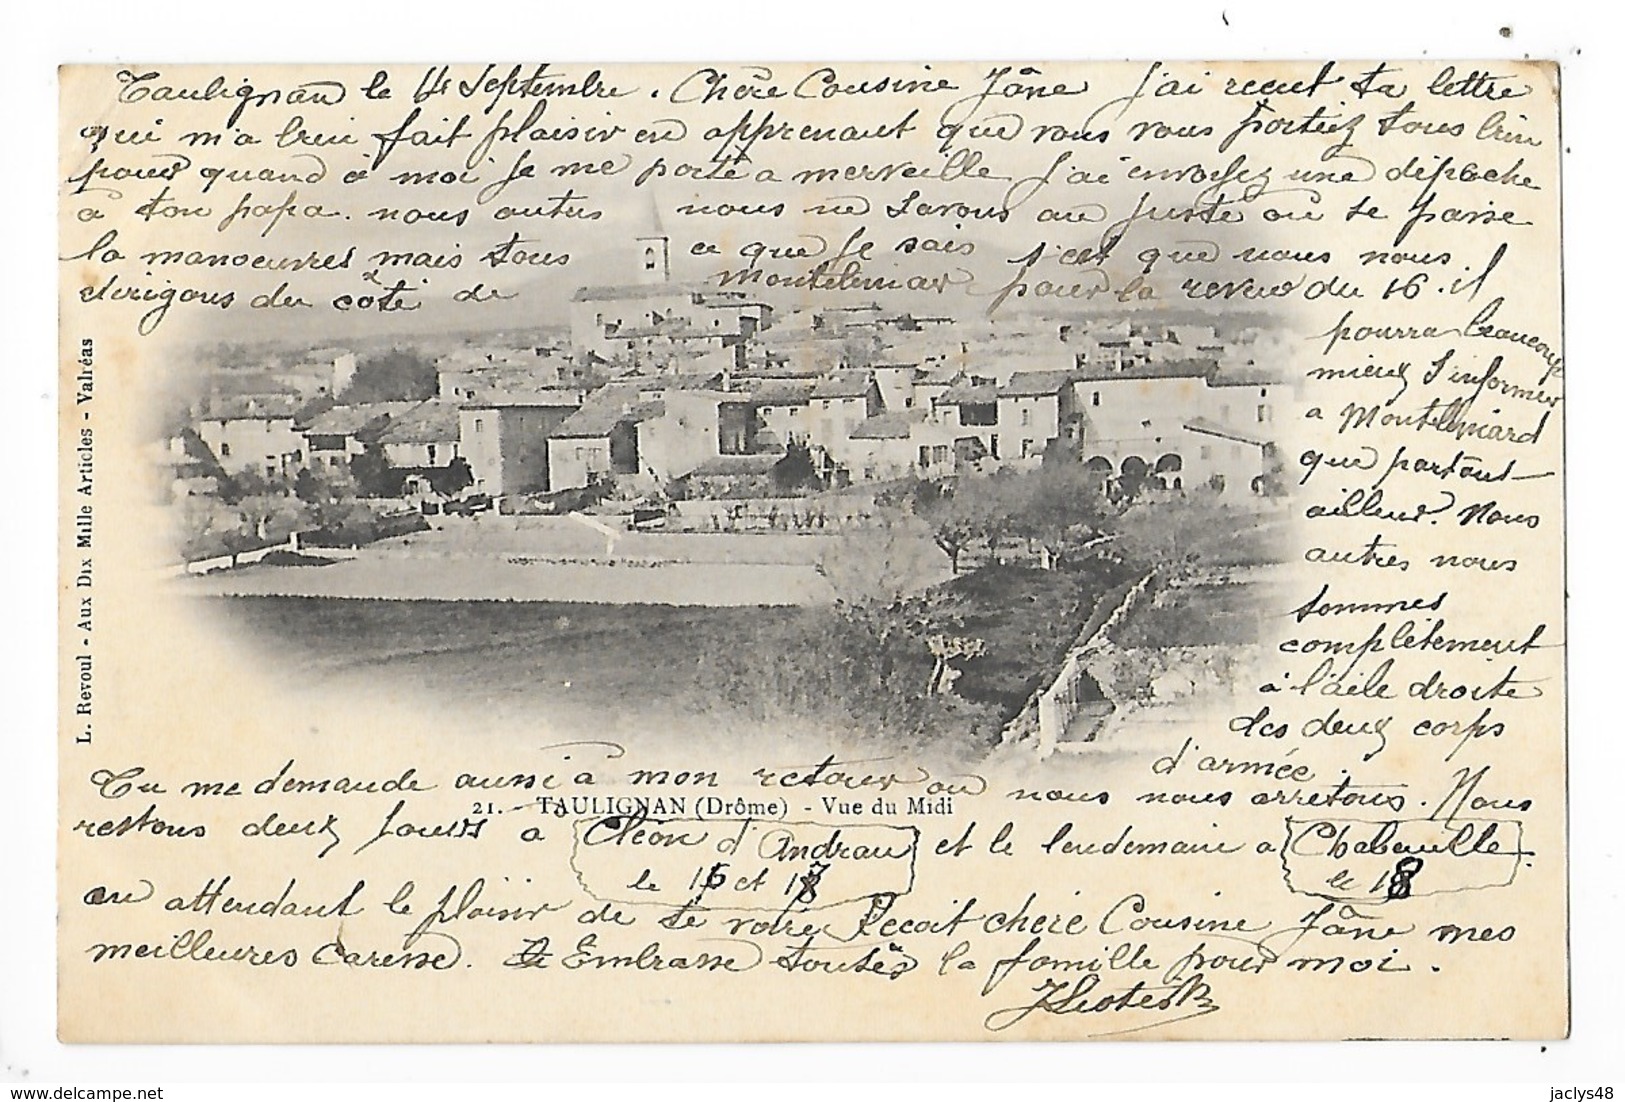 Taulignan le 14 Septembre. Chère Cousine Jâne J'ai recut ta lettre
qui m'a bien fait plaisir en apprenant que vous vous portiez tous bien
pour quand à moi Je me porte a merveille J'ai envoyez une dépeche
à ton papa. nous autres nous ne Savons au juste où se passe
la manoeuvres mais tous ce que Je sais s'est que nous nous
dirigons du côté de Montelimar pour la revue du 16. il
pourra beaucoup
mieuz S'informer
a Montelimard
que partout
ailleur. Nous
autres nous
sommes
complètement
à l'aile droite
des deuz corps
d'armée.
L. Revoul - Aux Dix Mille Articles - Valréas
Tu me demande aussi à mon retour ou nous nous arretons. Nous
21. - TAULIGNAN (Drôme) - Vue du Midi
restons deuz Jours a Cléon d'Andran et le lendemain a Chabeuille.
le 16 et 17 le 18
en attendant le plaisir de te voire Recoit chere Cousine Jâne mes
meilleures Caresse. Embrasse toutes la famille pour moi.
jaclys48